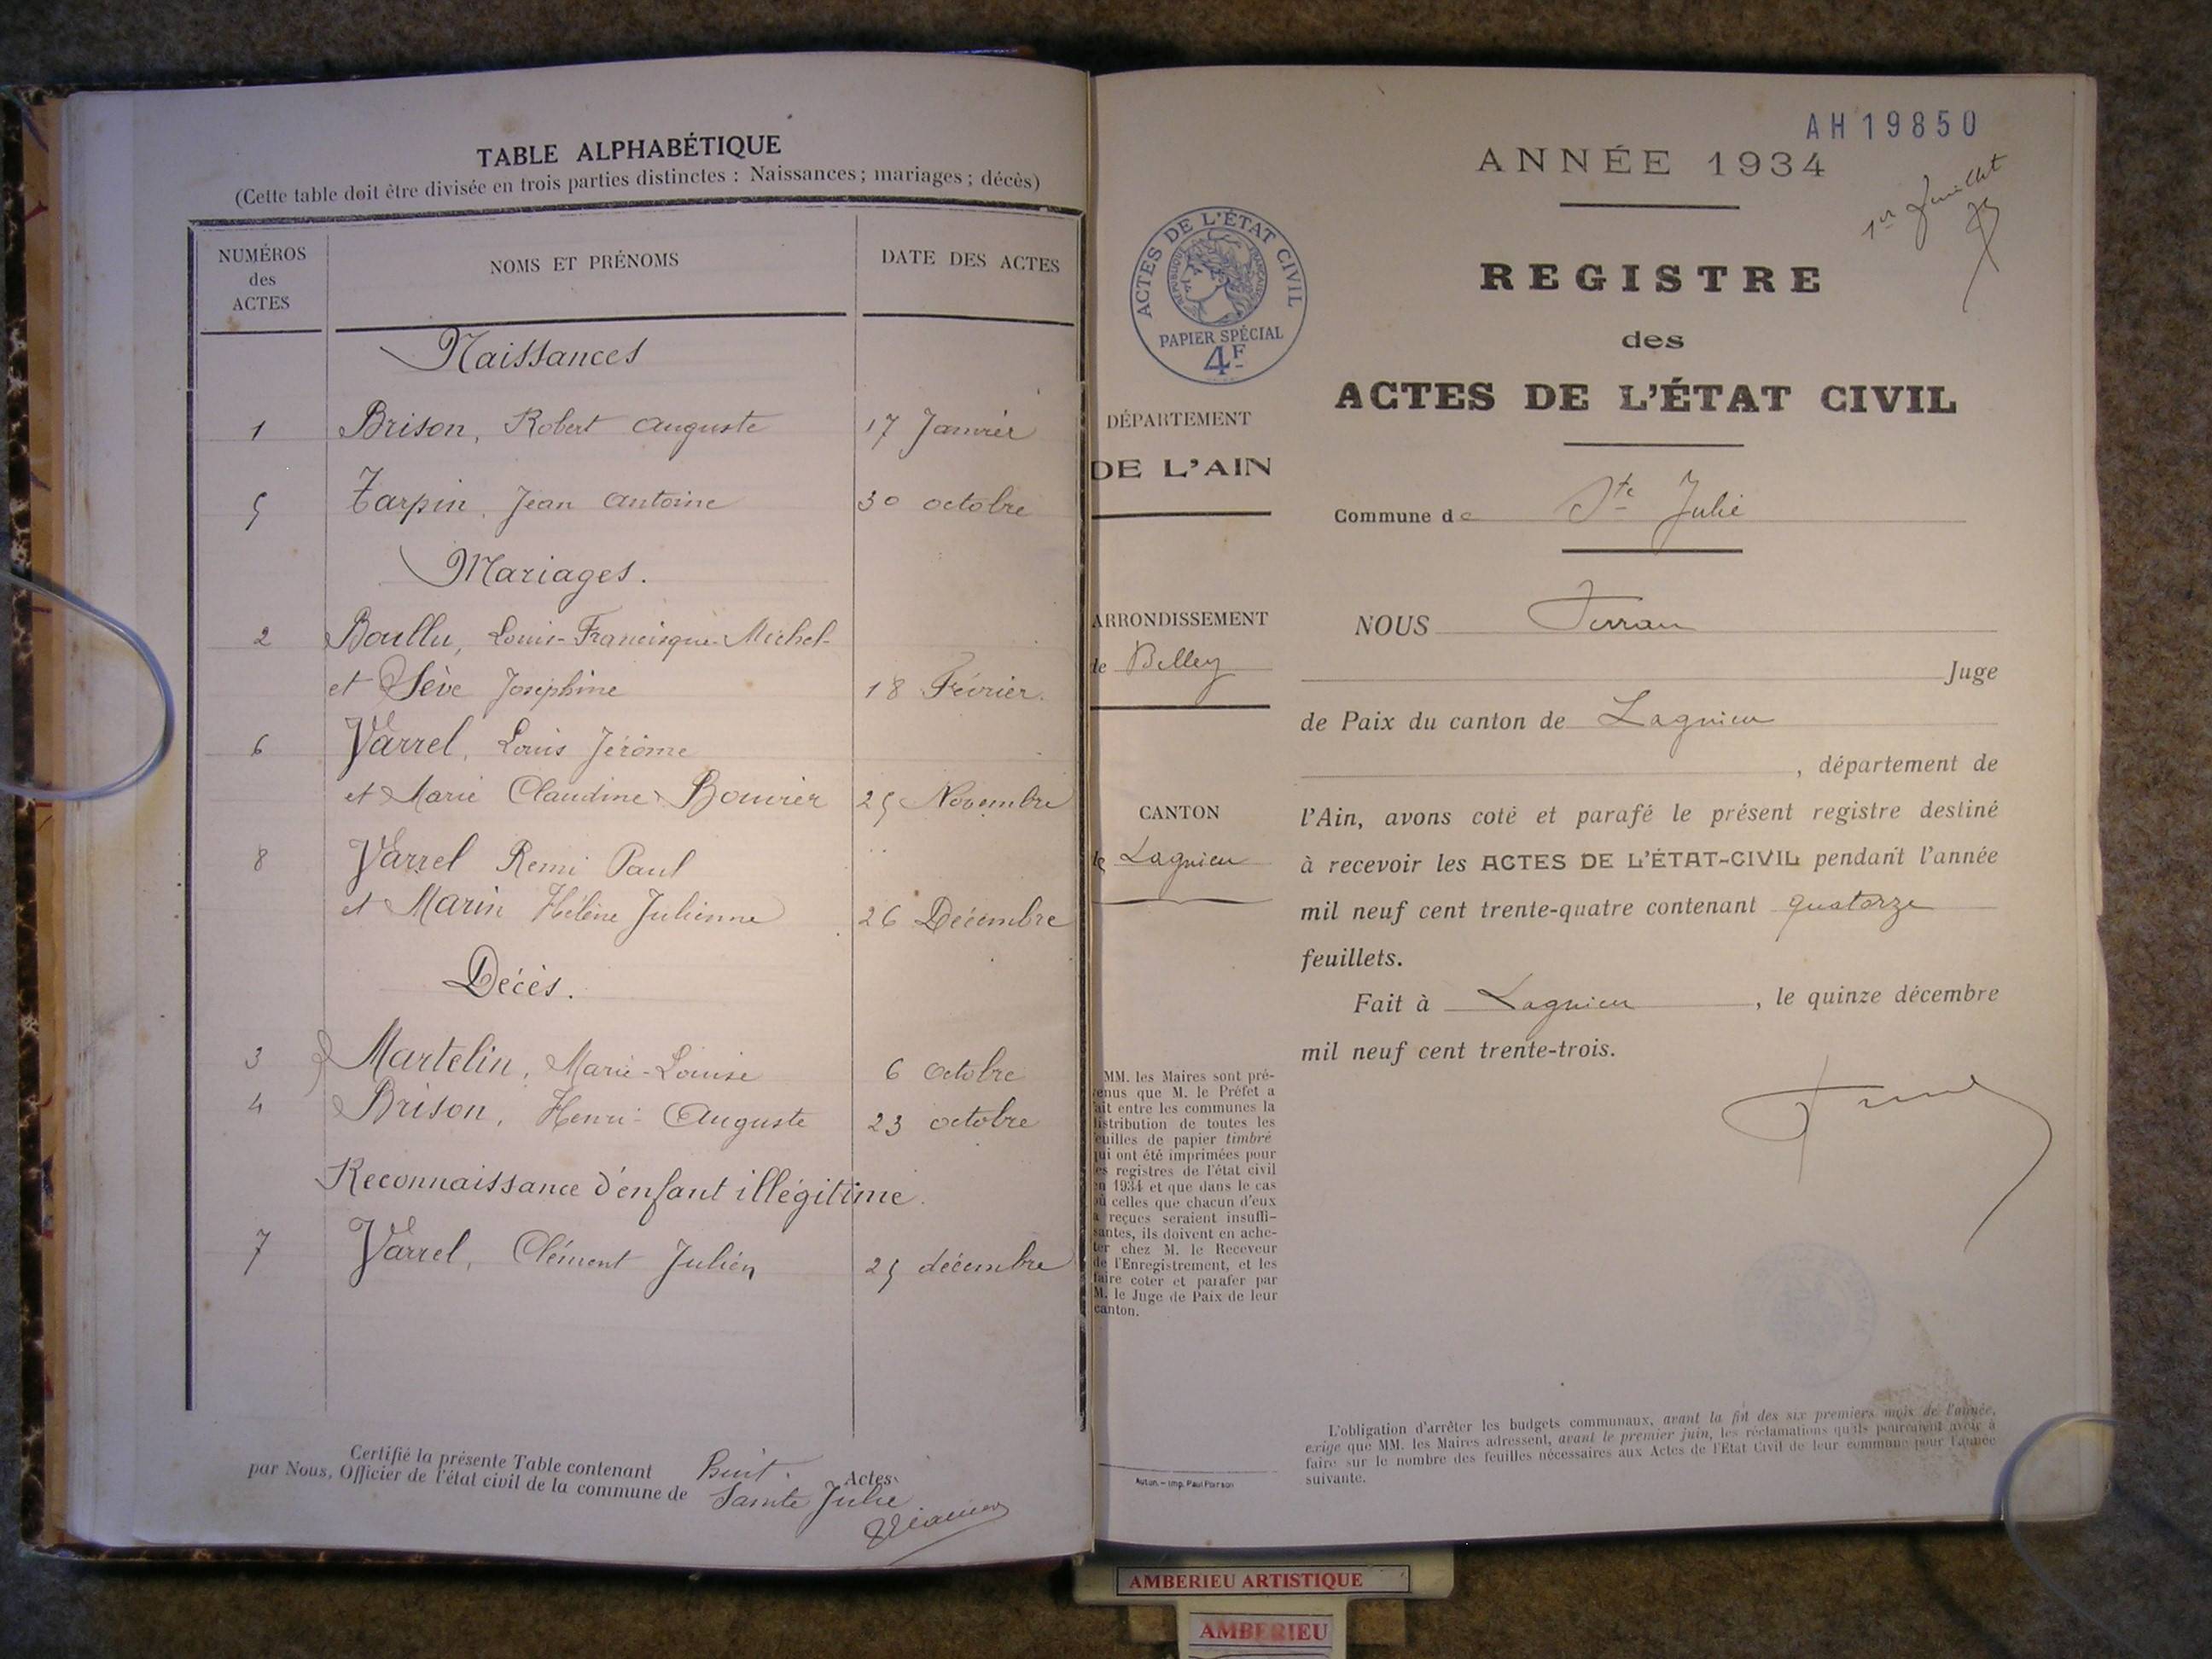 TABLE ALPHABÉTIQUE
(Cette table doit être divisée en trois parties distinctes : Naissances ; mariages ; décès)
NUMÉROS
des
ACTES
NOMS ET PRÉNOMS
DATE DES ACTES
Naissances
1 Brison, Robert Auguste 17 Janvier
5 Tarpin, Jean Antoine 30 octobre
Mariages.
2 Boullu, Louis-Francisque-Michel-
et Sève Joséphine 18 Février.
6 Varrel, Louis Jérôme
et Marie Claudine Bouvier 25 Novembre
8 Varrel Remi Paul
et Marin Hélène Julienne 26 Décembre
Décès.
3 Martelin, Marie-Louise 6 octobre
4 Brison, Henri Auguste 23 octobre
Reconnaissance d'enfant illégitime.
7 Varrel, Clément Julien 25 décembre
Certifié la présente Table contenant Huit. Actes
par Nous, Officier de l'état civil de la commune de Sainte Julie
AH19850
ANNÉE 1934
1er Juillet
REGISTRE
des
ACTES DE L'ÉTAT CIVIL
ACTES DE L'ÉTAT CIVIL
RÉPUBLIQUE FRANÇAISE
PAPIER SPÉCIAL
4F
DÉPARTEMENT
DE L'AIN
Commune de Ste Julie
ARRONDISSEMENT
de Belley
CANTON
de Lagnieu
NOUS Ferran
Juge
de Paix du canton de Lagnieu
, département de
l'Ain, avons coté et parafé le présent registre destiné
à recevoir les ACTES DE L'ÉTAT-CIVIL pendant l'année
mil neuf cent trente-quatre contenant quatorze
feuillets.
Fait à Lagnieu, le quinze décembre
mil neuf cent trente-trois.
MM. les Maires sont pré-
venus que M. le Préfet a
fait entre les communes la
distribution de toutes les
feuilles de papier timbré
qui ont été imprimées pour
les registres de l'état civil
en 1934 et que dans le cas
où celles que chacun d'eux
a reçues seraient insuffi-
santes, ils doivent en ache-
ter chez M. le Receveur
de l'Enregistrement, et les
faire coter et parafer par
M. le Juge de Paix de leur
canton.
L'obligation d'arrêter les budgets communaux, avant la fin des six premiers mois de l'année,
exige que MM. les Maires adressent, avant le premier juin, les réclamations qu'ils pourraient avoir à
faire sur le nombre des feuilles nécessaires aux Actes de l'Etat Civil de leur commune pour l'année
suivante.
Autun. - Imp. Paul
AMBERIEU ARTISTIQUE
AMBERIEU